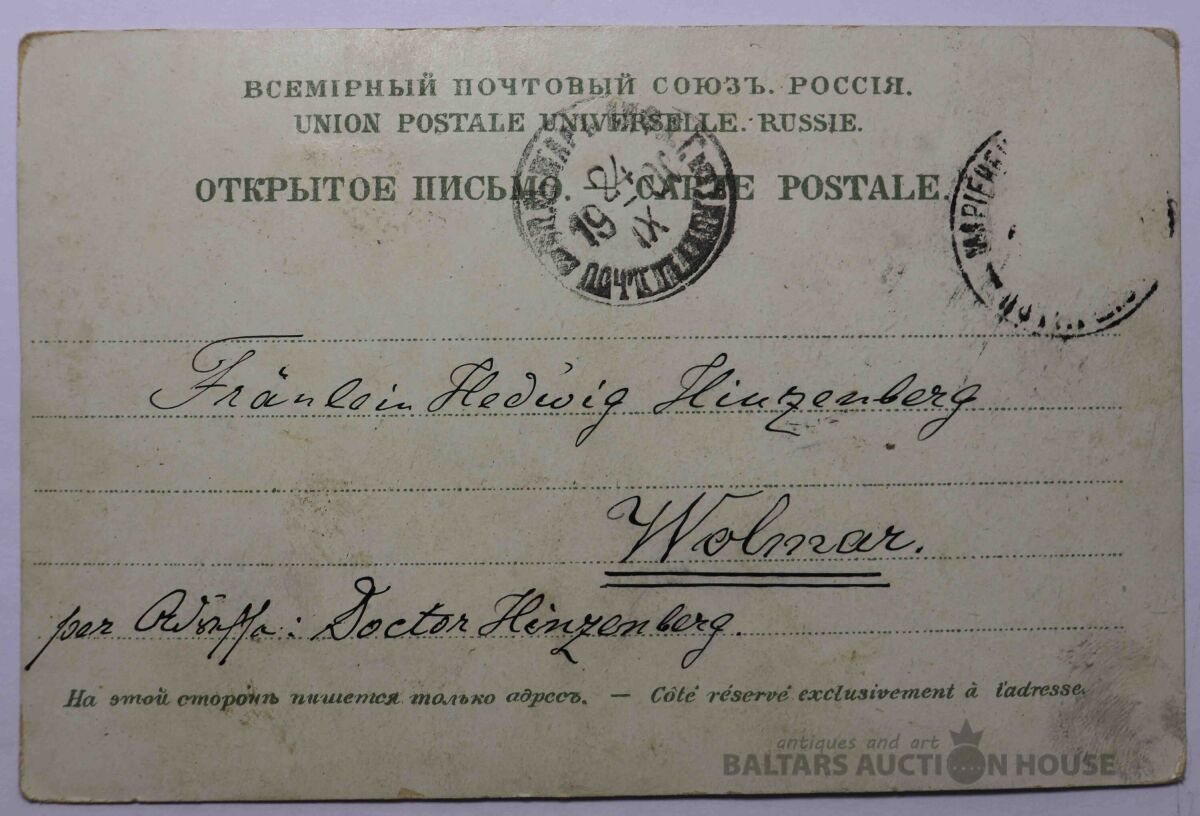 ВСЕМІРНЫЙ ПОЧТОВЫЙ СОЮЗЪ. РОССІЯ.
UNION POSTALE UNIVERSELLE. RUSSIE.
ОТКРЫТОЕ ПИСЬМО. — CARTE POSTALE.
19 24 IX
Fräulein Hedwig Hinzenberg
Wolmar.
per Doctor Hinzenberg.
На этой сторонѣ пишется только адресъ. — Côté réservé exclusivement à l'adresse.
antiques and art
BALTARS AUCTION HOUSE